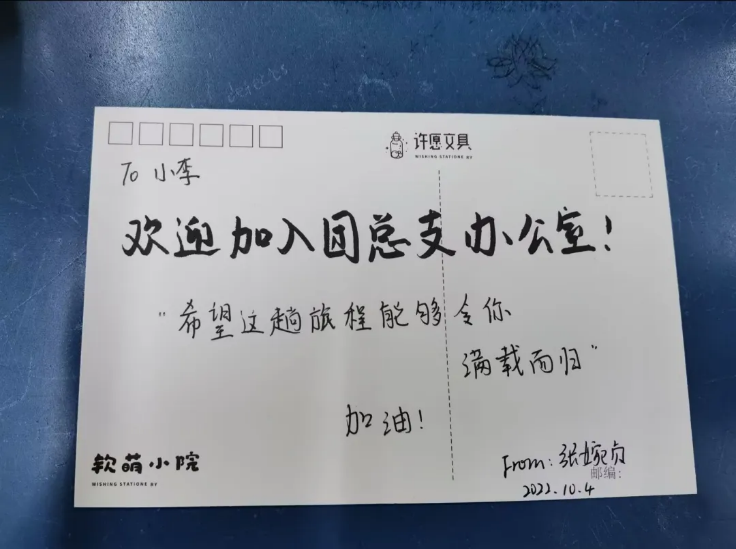 许愿文具
WISHING STATIONERY
To 小李
欢迎加入团总支办公室!
"希望这趟旅程能够令你
满载而归"
加油!
软萌小院
WISHING STATIONERY
From: 张婉贞
邮编:
2022.10.4